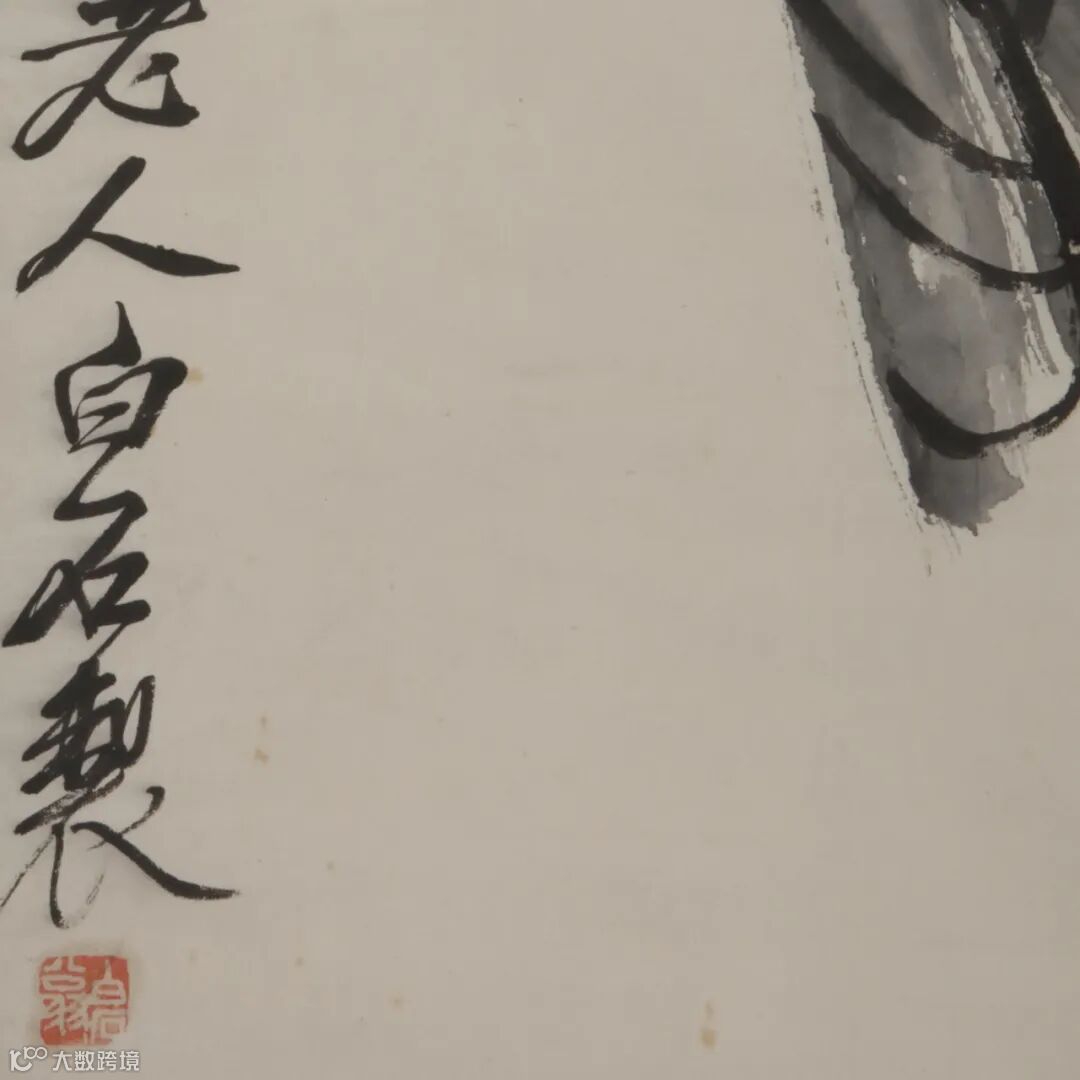 老人白石製
白石翁
大数跨境